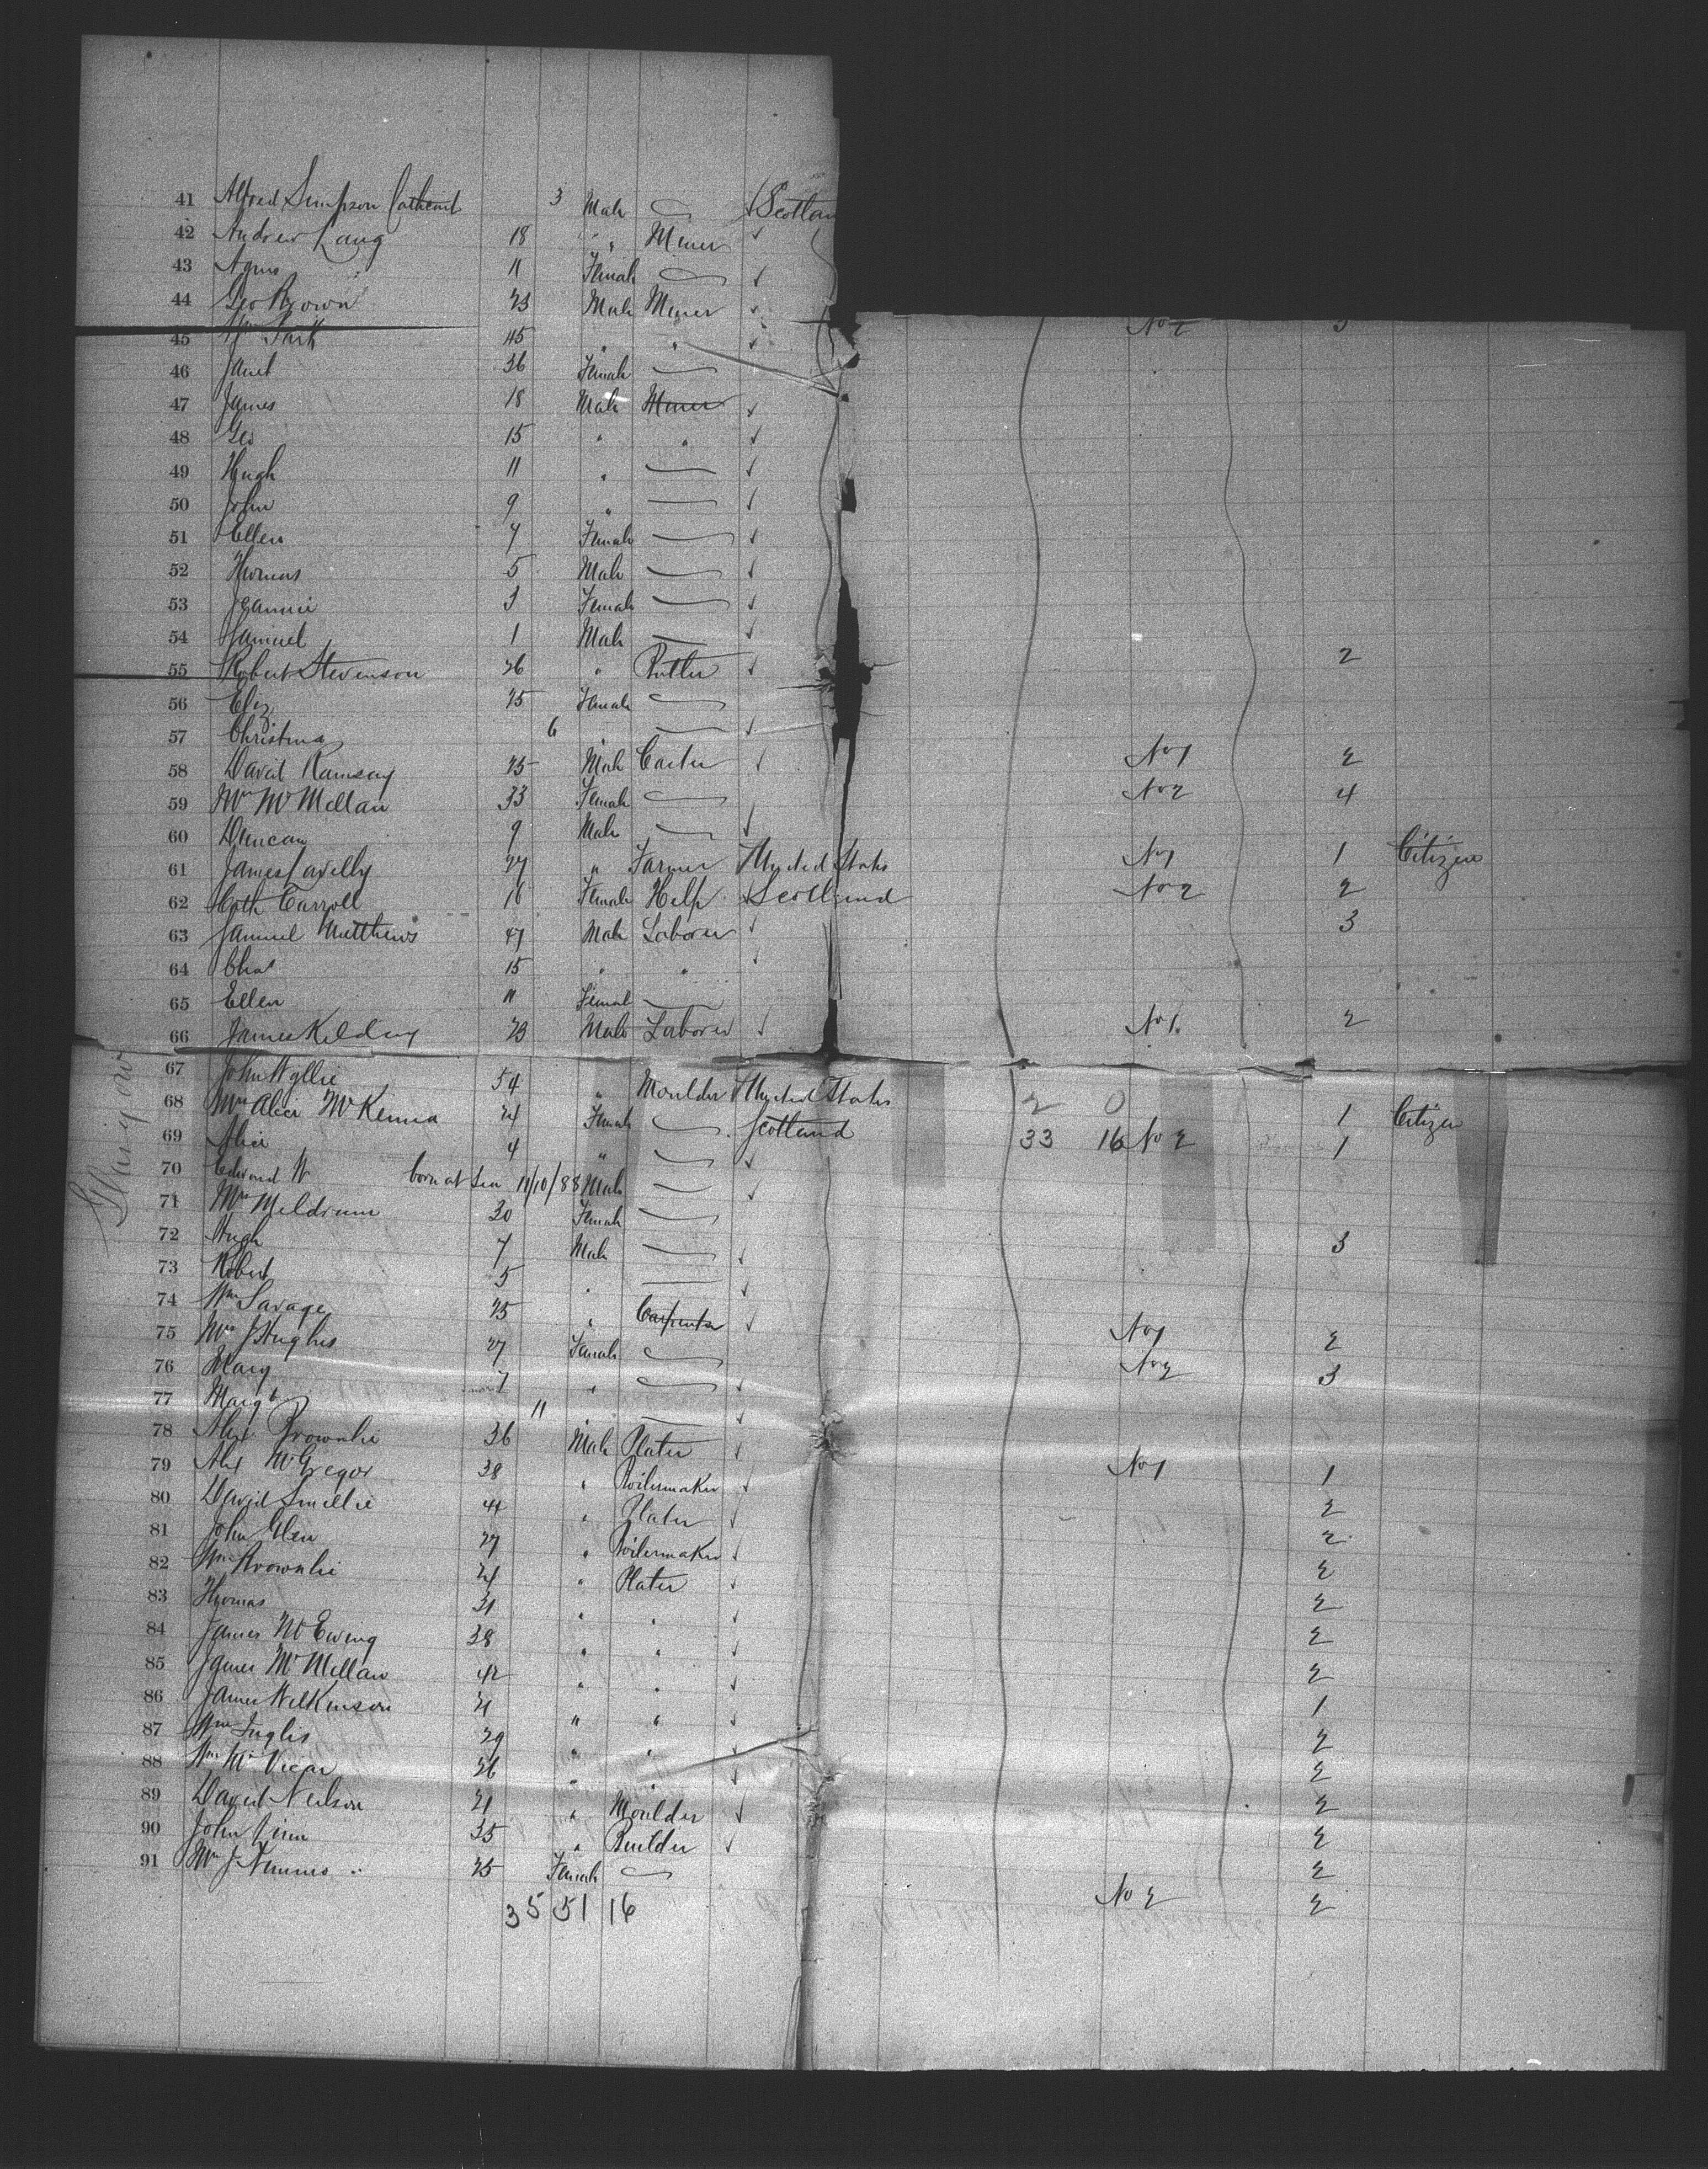 41 Alfred Simpson Cathcart 3 Male Scotlan
42 Andrew Lang 18 " Miner
43 Agnes 11 Female
44 Geo Brown 23 Male Miner
45 Wm Park 45 " " No 2 3
46 Janet 36 Female
47 James 18 Male Miner
48 Geo 15 " "
49 Hugh 11 "
50 John 9 "
51 Ellen 7 Female
52 Thomas 5 Male
53 Jeannie 3 Female
54 Samuel 1 Male
55 Robert Stevenson 26 " 2
56 Eliz 25 Female
57 Christina 6 "
58 David Ramsay 25 Male Carter No 1 2
59 Mrs McMillan 33 Female No 2 4
60 Duncan 9 Male
61 James 27 " Farmer United States No 1 1 Citizen
62 Cath Carroll 16 Female Help Scotland No 2 2
63 Samuel Matthews 47 Male Laborer 3
64 Chas 15 " "
65 Ellen 11 Female
66 James 23 Male Laborer No 1. 2
67 John Wyllie 54 " Moulder United States 2 0 1 Citizen
68 Mrs Alice McKenna 24 Female Scotland 33 16 No 2 1
69 Alice 4 "
70 Edward W born at Sea 11/10/88 Male
71 Mrs Meldrum 30 Female 3
72 Hugh 7 Male
73 Robert 5 "
74 Wm Savage 25 " Carpenter No 1 2
75 Mrs J Hughes 27 Female No 2 3
76 Mary 7 "
77 Margt 11
78 Alex Brownlie 36 Male Plater No 1 1
79 Alex McGregor 38 " Boilermaker 2
80 David Smellie 44 " Plater 2
81 John Glen 27 " Boilermaker 2
82 Wm Brownlie 24 " Plater 2
83 Thomas 31 " " 2
84 James McEwing 38 " " 2
85 James McMillan 42 " " 1
86 James Wilkinson 21 " " 2
87 Wm Inglis 29 " " 2
88 Wm McVicar 26 " " 2
89 David Neilson 21 " Moulder 2
90 John Linn 35 " Builder 2
91 Mrs J Nimmo 25 Female No 2 2
35 51 16
Glasgow